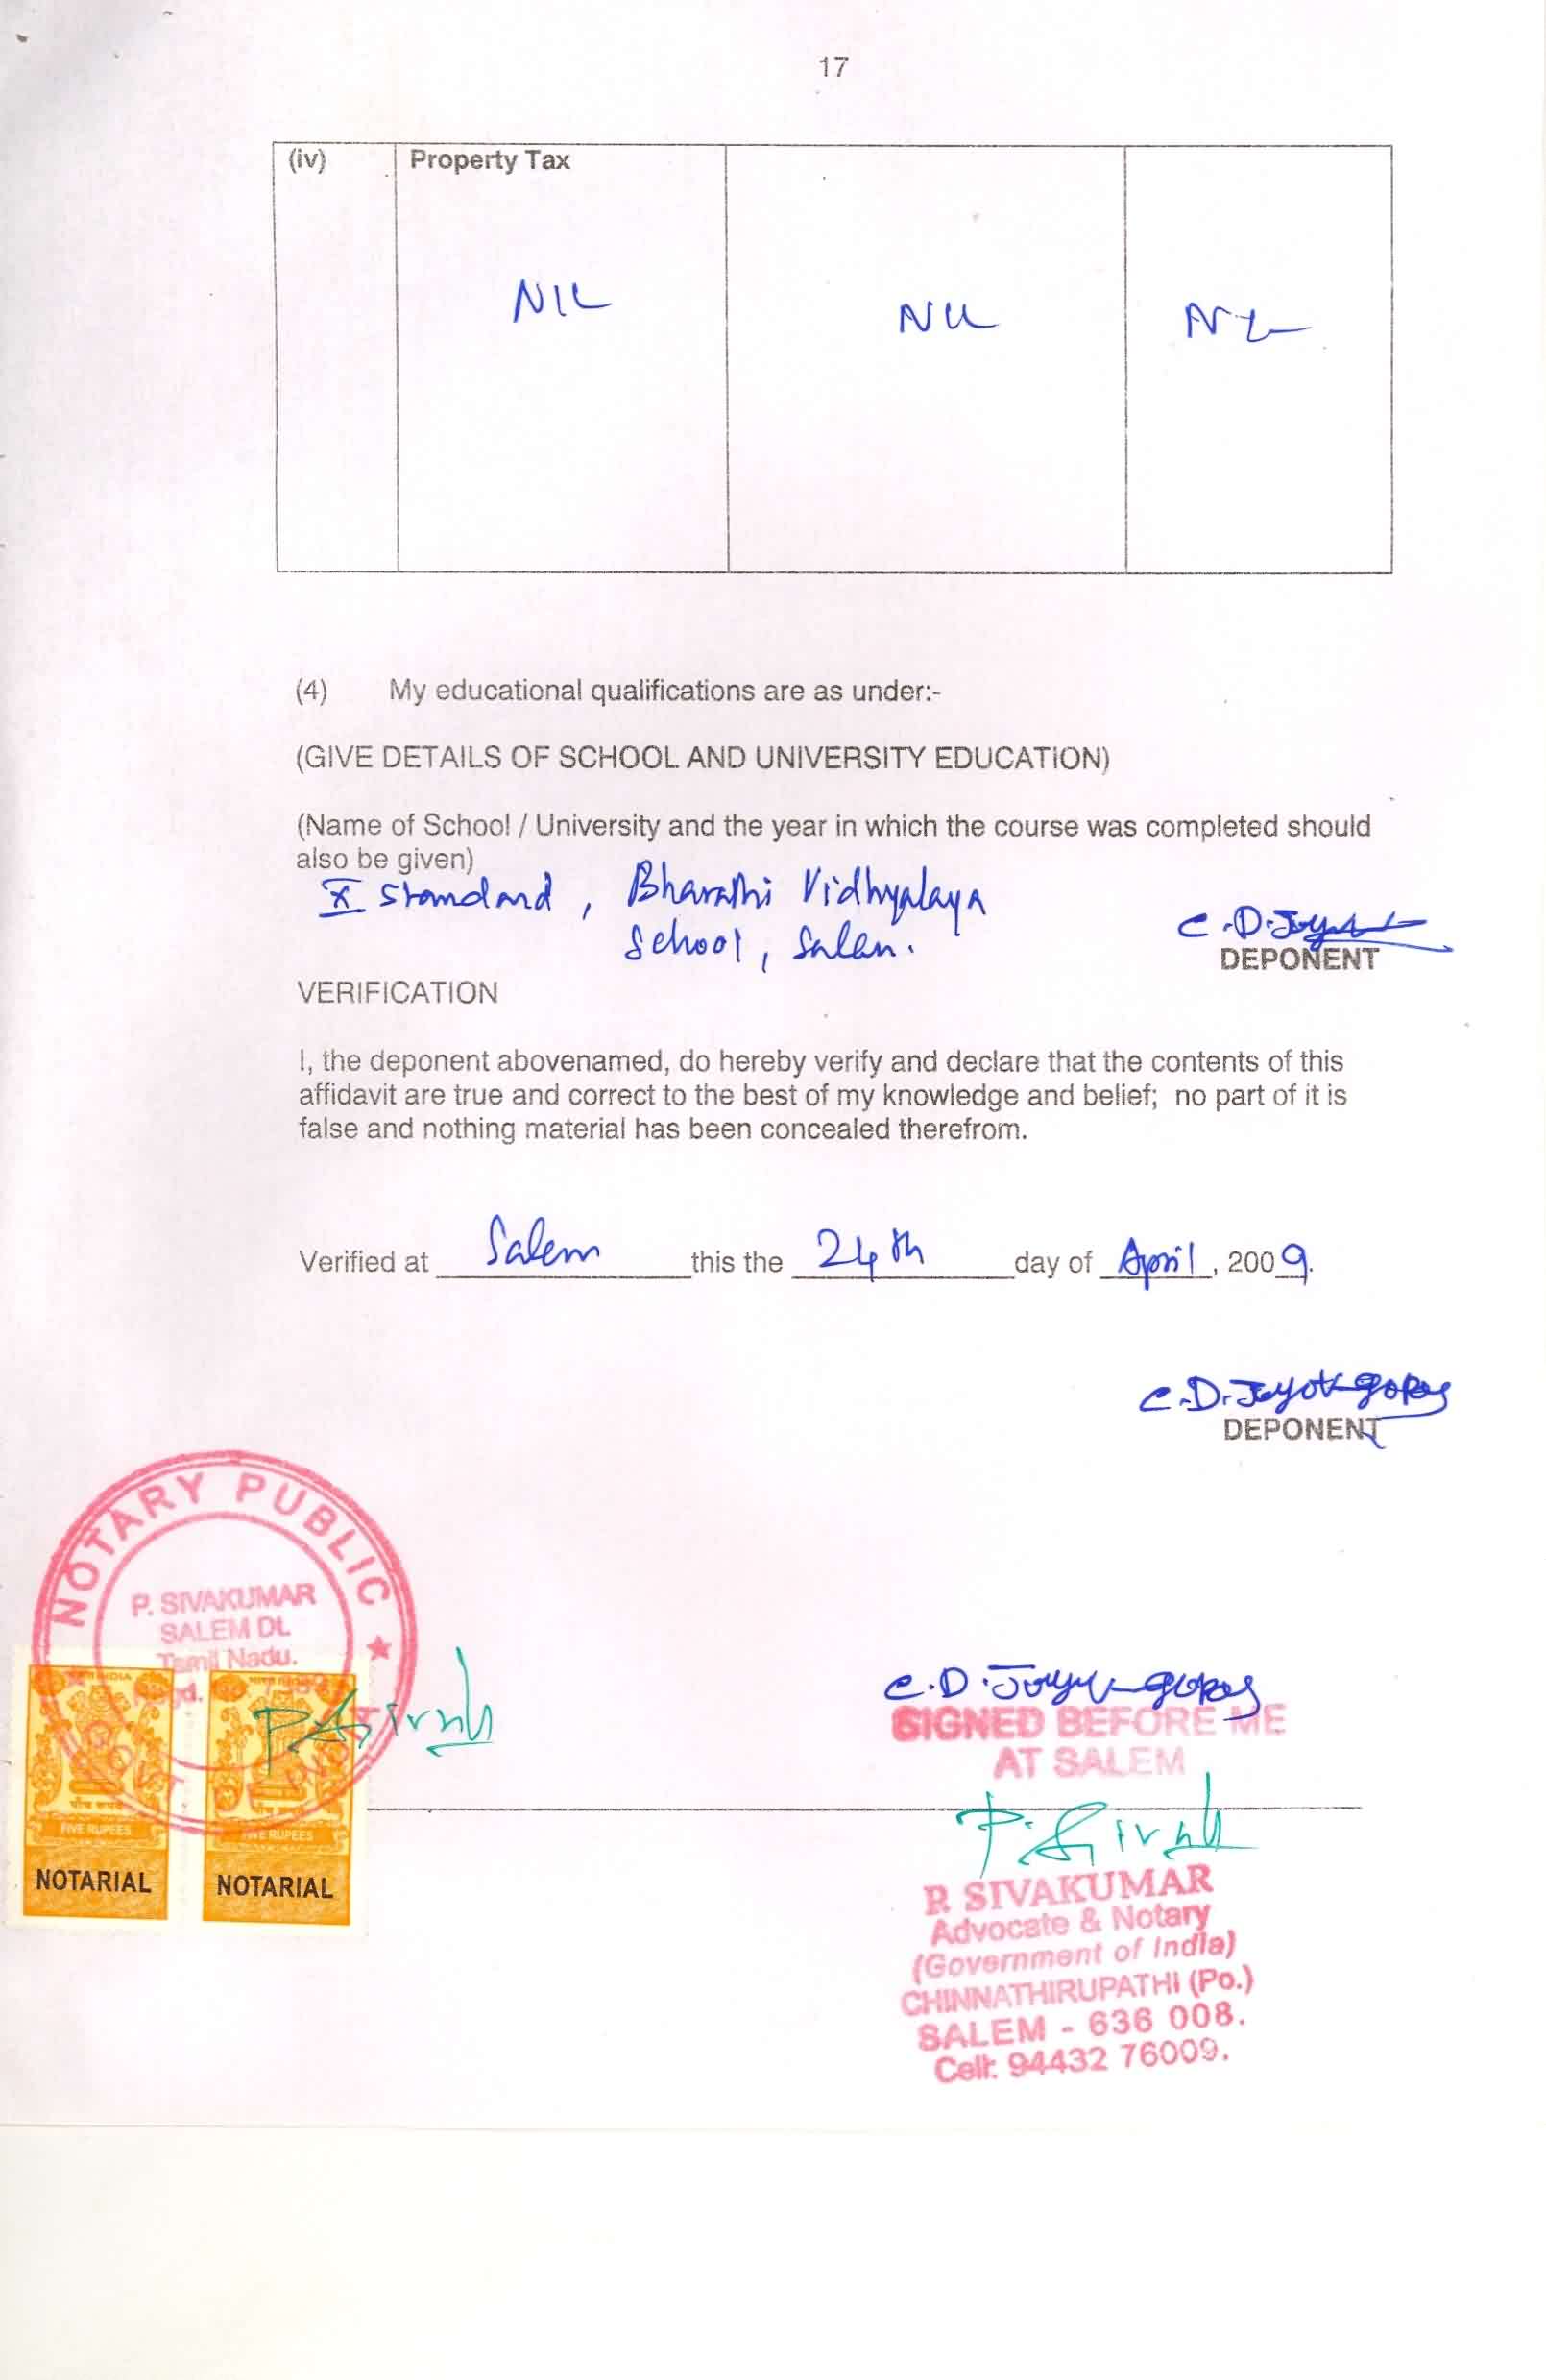 17
(iv) Property Tax
NIL NIL NIL
(4) My educational qualifications are as under:-
(GIVE DETAILS OF SCHOOL AND UNIVERSITY EDUCATION)
(Name of School / University and the year in which the course was completed should
also be given)
X Standard, Bharathi Vidhyalaya
School, Salem.
C.D.
DEPONENT
VERIFICATION
I, the deponent abovenamed, do hereby verify and declare that the contents of this
affidavit are true and correct to the best of my knowledge and belief; no part of it is
false and nothing material has been concealed therefrom.
Verified at Salem this the 24th day of April, 2009.
C.D.
DEPONENT
NOTARY PUBLIC
P. SIVAKUMAR
SALEM Dt.
Tamil Nadu.
FIVE RUPEES
NOTARIAL
FIVE RUPEES
NOTARIAL
C.D.
SIGNED BEFORE ME
AT SALEM
P. SIVAKUMAR
Advocate & Notary
(Government of India)
CHINNATHIRUPATHI (Po.)
SALEM - 636 008.
Cell: 94432 76009.